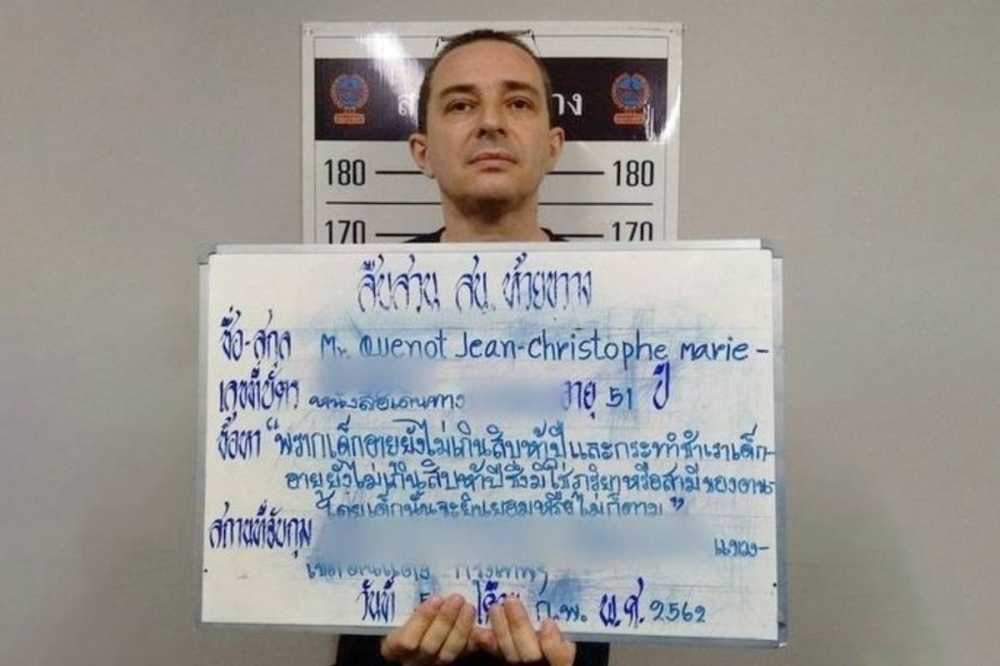 180 180
170 170
สืบสวน สน. ห้วยขวาง
ชื่อ-สกุล Mr. Quenot Jean-Christophe Marie -
เลขที่บัตร หนังสือเดินทาง อายุ 51 ปี
ข้อหา "พรากเด็กอายุยังไม่เกินสิบห้าปีและกระทำชำเราเด็ก-
อายุยังไม่เกินสิบห้าปีซึ่งมิใช่ภริยาหรือสามีของตน
โดยเด็กนั้นจะยินยอมหรือไม่ก็ตาม"
สถานที่จับกุม แขวง-
กรุงเทพฯ
วันที่ 5 เดือน ก.พ. พ.ศ. 2562